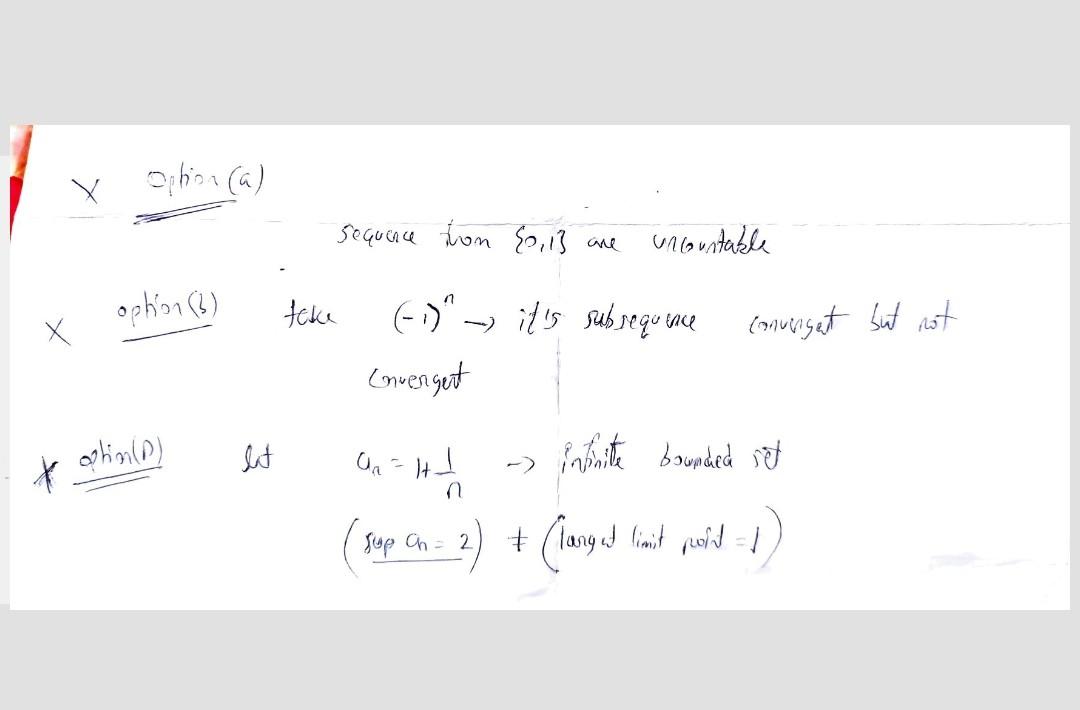 X option (a)
sequence from {0,1} are uncountable
X option (b) take (-1)ⁿ → it's subsequence convergat but not
convergent
X option (D) let aₙ = 1+1/n → infinite bounded set
(sup aₙ = 2) ≠ (largest limit point = 1)